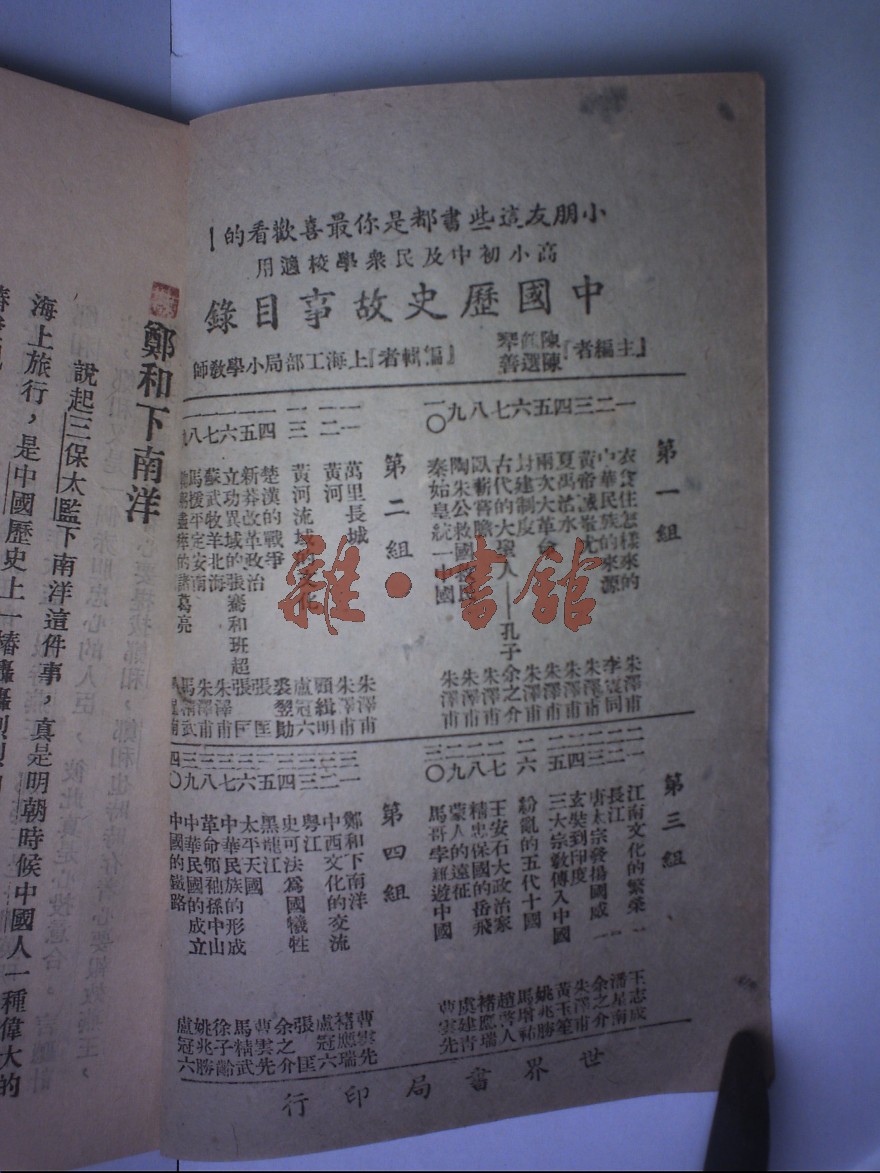 小朋友這些書都是你最喜歡看的！
高小初中及民衆學校適用
中國歷史故事目錄
『主編者』陳鶴琴 陳選善
『編輯者』上海工部局小學教師
第一組
一 衣食住怎樣來的 朱澤甫
二 中華民族的來源
三 黃帝滅蚩尤 朱澤甫
四 夏禹治水 朱澤甫
五 兩次大革命 朱澤甫
六 封建制度 朱澤甫
七 古代的大聖人——孔子 余之介
八 臥薪嘗膽 朱澤甫
九 陶朱公救國救民 朱澤甫
一〇 秦始皇統一中國 朱澤甫
第二組
一一 萬里長城 朱澤甫
一二 黃河 朱澤甫
一三 黃河流域的文化 顧緝明
一四 楚漢的戰爭
一五 新莽改革政治
一六 立功異域的張騫和班超 張匡
一七 蘇武牧羊北海 朱澤甫
一八 馬援平定安南 朱澤甫
鞠躬盡瘁的諸葛亮 馬精武
第三組
二一 江南文化的繁榮 王志成
二二 長江 潘星南
二三 唐太宗發揚國威 余之介
二四 玄奘到印度 朱澤甫
二五 三大宗教傳入中國 黃玉笙
二六 紛亂的五代十國 姚兆勝
二七 王安石大政治家 馬增祐
二八 精忠保國的岳飛 趙啓人
二九 蒙人的遠征 褚應瑞
三〇 馬哥孛羅遊中國 虞建青
曹雲先
第四組
三一 鄭和下南洋 曹雲先
三二 中西文化的交流 褚應瑞
三三 粵江 盧冠六
三四 史可法爲國犧牲 張匡
三五 黑龍江 余之介
三六 太平天國 曹雲先
三七 中華民族的形成 馬精武
三八 革命領袖孫中山 徐子齡
三九 中華民國的成立 姚兆勝
四〇 中國的鐵路 盧冠六
世界書局印行
鄭和下南洋
說起三保太監下南洋這件事，真是明朝時候中國人一種偉大的
海上旅行，是中國歷史上一樁轟轟烈烈
雜·書館